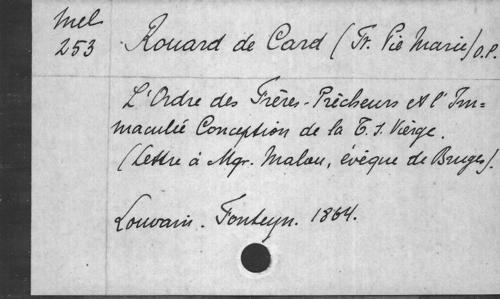 Mel
253
Rouard de Card (Fr. Pie Marie) O.P.
L'Ordre des Frères-Prêcheurs et l'Im=
maculée Conception de la T. S. Vierge.
(Lettre à Mgr. Malou, évêque de Bruges).
Louvain. Fonteyn. 1864.